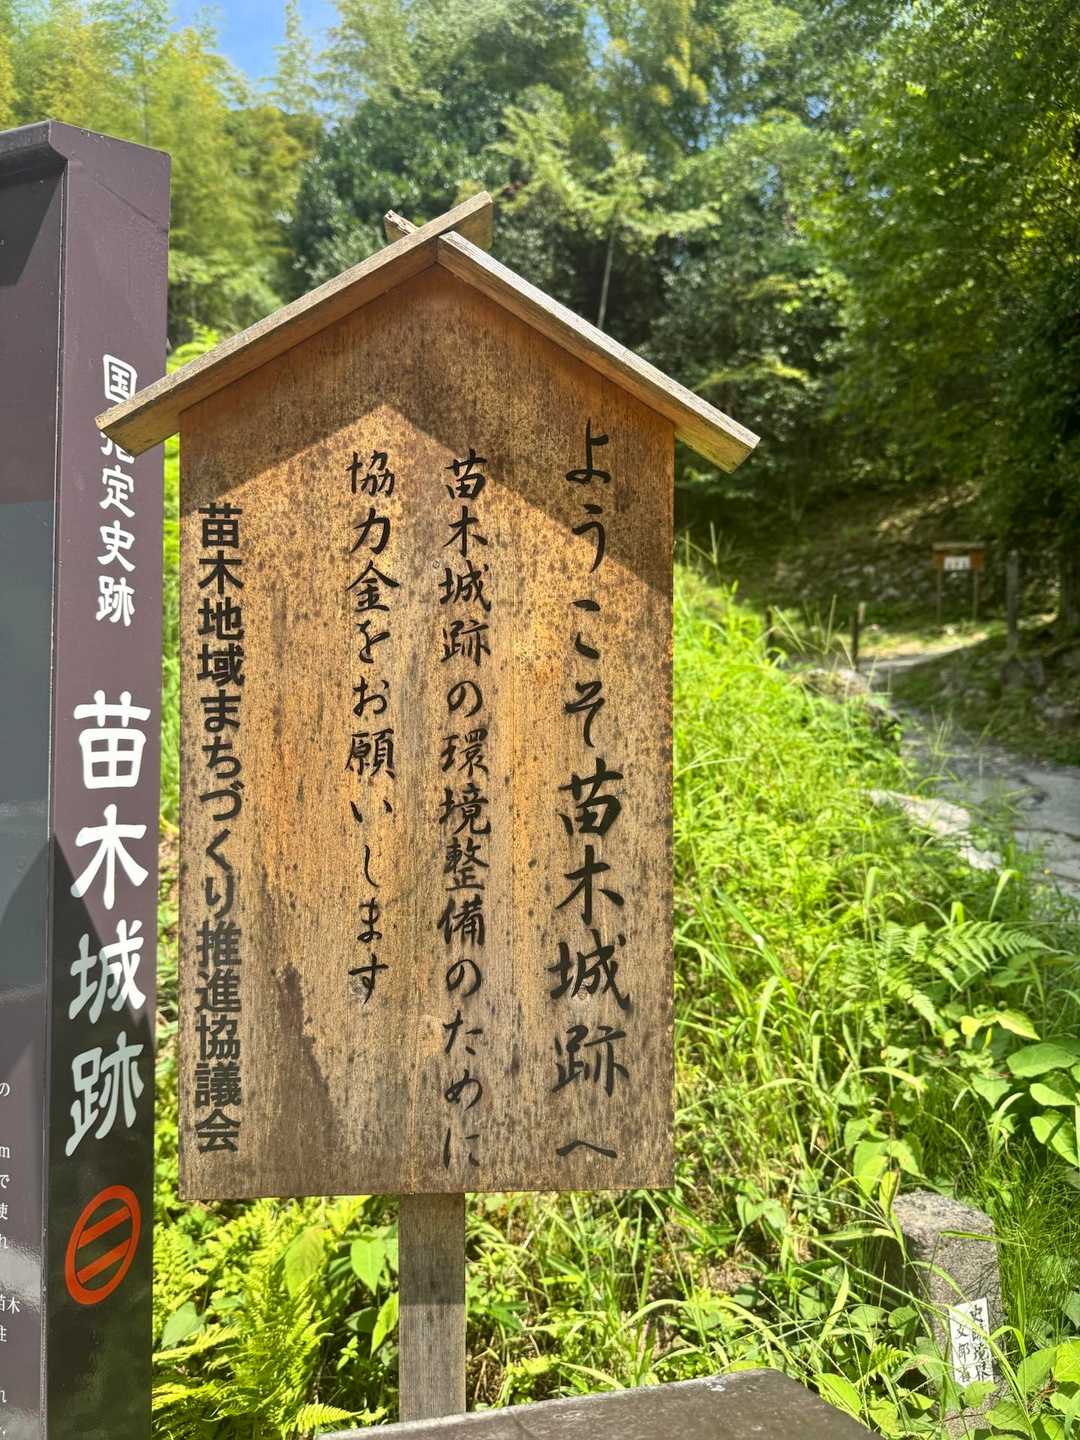 ようこそ苗木城跡へ
苗木城跡の環境整備のために
協力金をお願いします
苗木地域まちづくり推進協議会
国指定史跡
苗木城跡
史跡境界